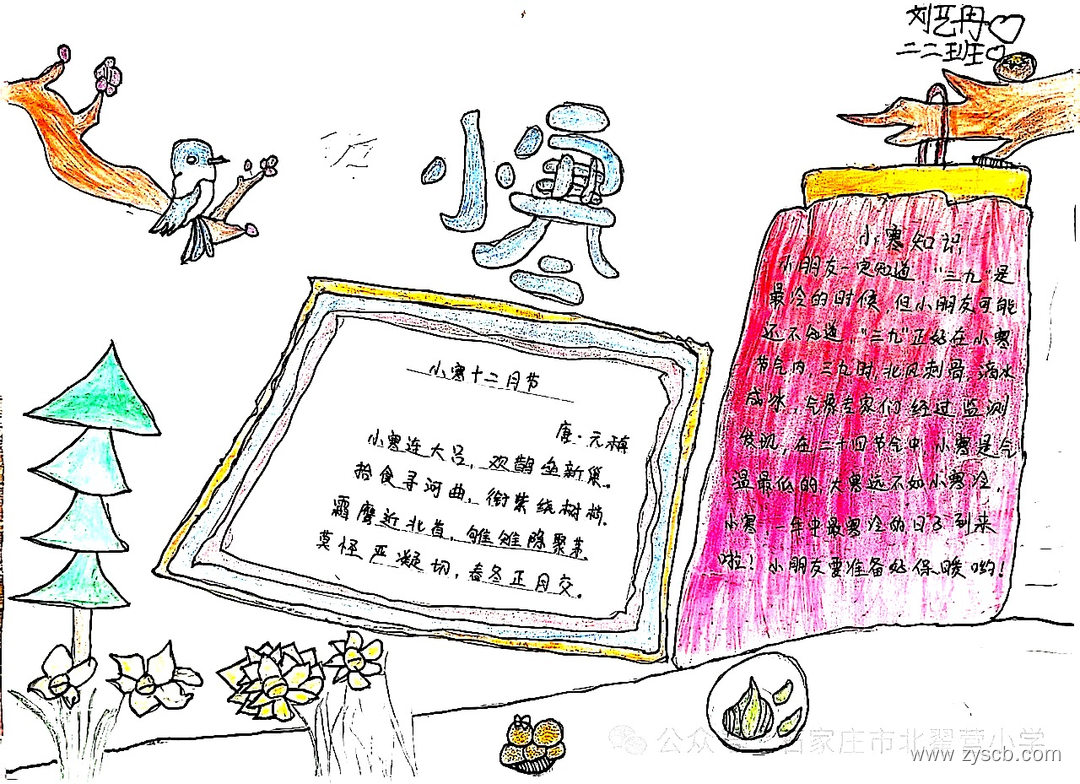 刘艺丹
二二班
小寒
小寒十二月节
唐·元稹
小寒连大吕，欢鹊垒新巢。
拾食寻河曲，衔紫绕树梢。
霜鹰近北首，雊雉隐聚茅。
莫怪严凝切，春冬正月交。
小寒知识
小朋友一定知道，"三九"是
最冷的时候，但小朋友可能
还不知道，"三九"正好在小寒
节气内，三九时，北风刺骨，滴水
成冰，气象专家们经过监测
发现，在二十四节气中，小寒是气
温最低的，大寒远不如小寒冷，
小寒！一年中最寒冷的日子到来
啦！小朋友要准备好保暖哟！
公众号 石家庄市北翟营小学
www.zyscb.com